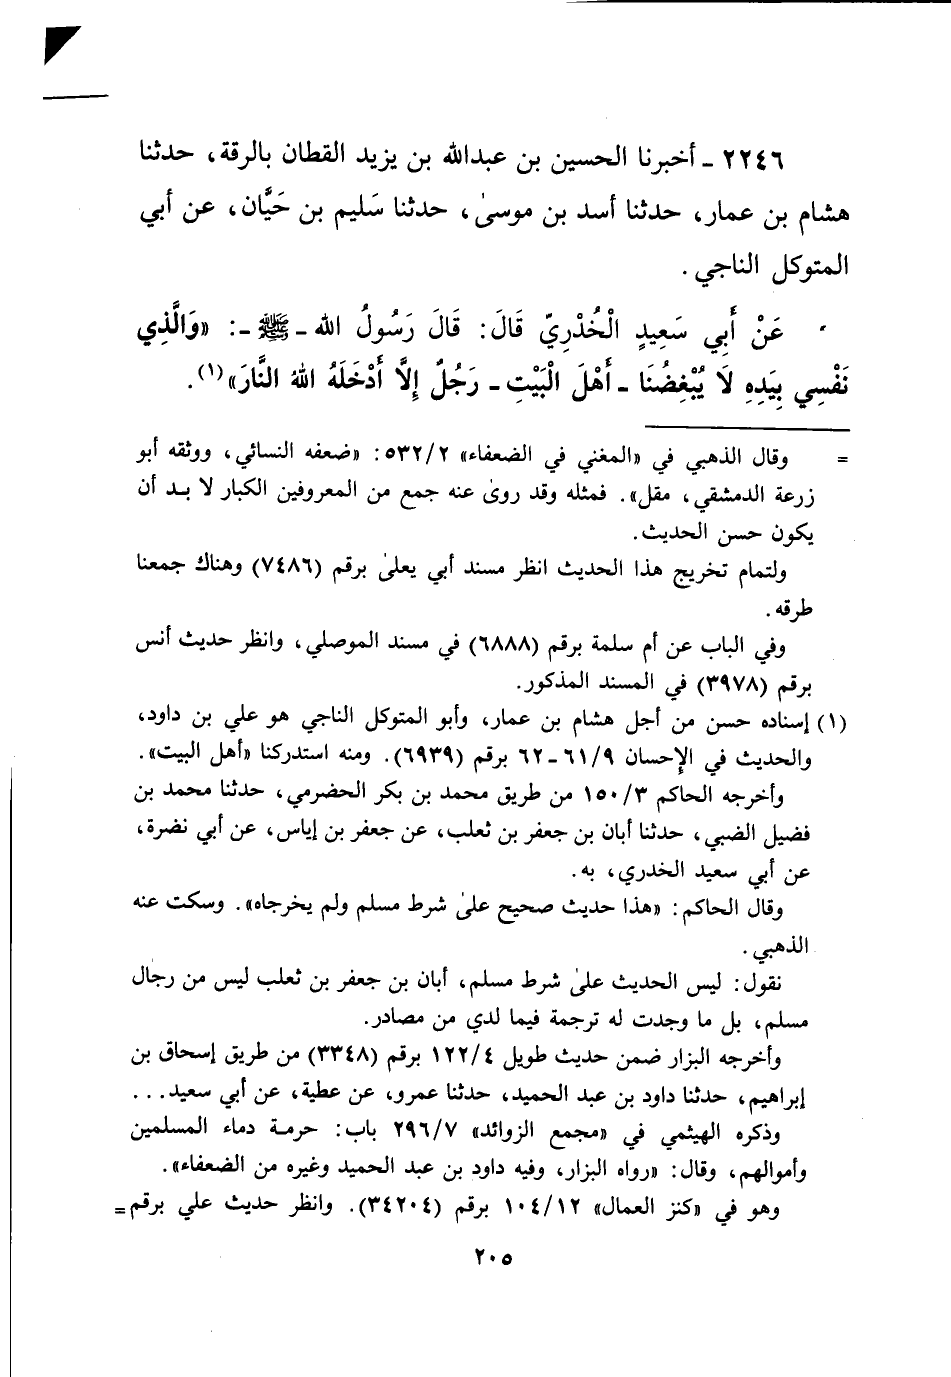 ٢٢٤٦ ـ أخبرنا الحسين بن عبدالله بن يزيد القطان بالرقة، حدثنا
هشام بن عمار، حدثنا أسد بن موسىٰ، حدثنا سَليم بن حَيَّان، عن أبي
المتوكل الناجي.
عَنْ أَبِي سَعِيدٍ الْخُدْرِيّ قَالَ: قَالَ رَسُولُ الله ـ ﷺ ـ: «وَالَّذِي
نَفْسِي بِيَدِهِ لَا يُبْغِضُنَا ـ أَهْلَ الْبَيْتِ ـ رَجُلٌ إِلَّا أَدْخَلَهُ اللهُ النَّارَ»(١).
= وقال الذهبي في «المغني في الضعفاء» ٥٣٢/٢: «ضعفه النسائي، ووثقه أبو
زرعة الدمشقي، مقل». فمثله وقد روىٰ عنه جمع من المعروفين الكبار لا بد أن
يكون حسن الحديث.
ولتمام تخريج هذا الحديث انظر مسند أبي يعلىٰ برقم (٧٤٨٦) وهناك جمعنا
طرقه.
وفي الباب عن أم سلمة برقم (٦٨٨٨) في مسند الموصلي، وانظر حديث أنس
برقم (٣٩٧٨) في المسند المذكور.
(١) إسناده حسن من أجل هشام بن عمار، وأبو المتوكل الناجي هو علي بن داود،
والحديث في الإحسان ٦١/٩ -٦٢ برقم (٦٩٣٩). ومنه استدركنا «أهل البيت».
وأخرجه الحاكم ١٥٠/٣ من طريق محمد بن بكر الحضرمي، حدثنا محمد بن
فضيل الضبي، حدثنا أبان بن جعفر بن ثعلب، عن جعفر بن إياس، عن أبي نضرة،
عن أبي سعيد الخدري، به.
وقال الحاكم: «هذا حديث صحيح علىٰ شرط مسلم ولم يخرجاه». وسكت عنه
الذهبي.
نقول: ليس الحديث علىٰ شرط مسلم، أبان بن جعفر بن ثعلب ليس من رجال
مسلم، بل ما وجدت له ترجمة فيما لدي من مصادر.
وأخرجه البزار ضمن حديث طويل ١٢٢/٤ برقم (٣٣٤٨) من طريق إسحاق بن
إبراهيم، حدثنا داود بن عبد الحميد، حدثنا عمرو، عن عطية، عن أبي سعيد...
وذكره الهيثمي في «مجمع الزوائد» ٢٩٦/٧ باب: حرمة دماء المسلمين
وأموالهم، وقال: «رواه البزار، وفيه داود بن عبد الحميد وغيره من الضعفاء».
وهو في «كنز العمال» ١٠٤/١٢ برقم (٣٤٢٠٤). وانظر حديث علي برقم =
٢٠٥